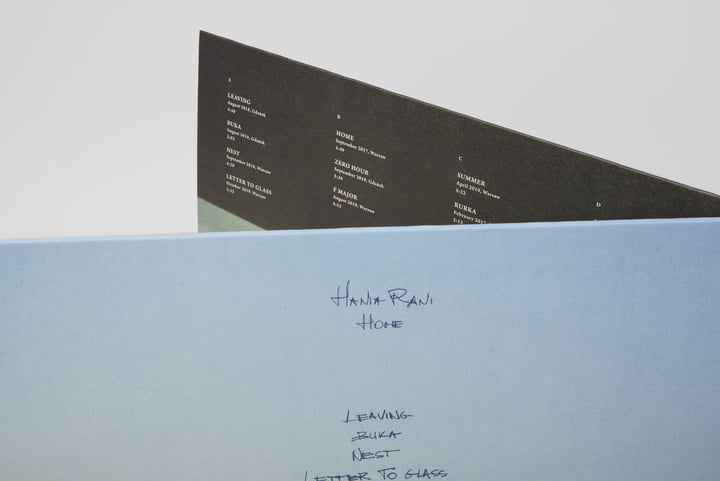 A
LEAVING
August 2018, Gdańsk
BUKA
August 2018, Gdańsk
NEST
September 2018, Warsaw
LETTER TO GLASS
October 2019, Warsaw
B
HOME
September 2017, Warsaw
ZERO HOUR
September 2019, Gdańsk
F MAJOR
August 2019, Warsaw
C
SUMMER
April 2019, Warsaw
5:32
RURKA
February 2017
D
HANIA RANI
HOME
LEAVING
BUKA
NEST
LETTER TO GLASS